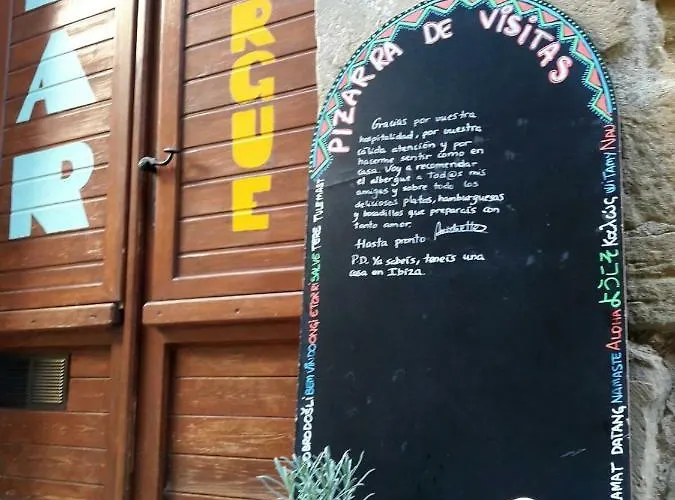 AR
RGUE
PIZARRA DE VISITAS
Gracias por vuestra
hospitalidad, por vuestra
cálida atención y por
hacerme sentir como en
casa. Voy a recomendar
el albergue a Tod@s mis
amigas y sobre todo los
deliciosos platos, hamburguesas
y bocadillos que preparáis con
tanto amor.
Hasta pronto
P.D. Ya sabéis, tenéis una
casa en Ibiza.
DOBRODOŠLI BEM VINDO ONGI ETORRI SALVE TERE TULEMAST
AMAT DATANG NAMASTE ALOHA ようこそ Καλώς WITAMY NAU